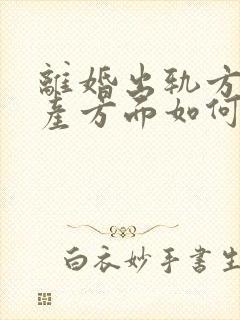 離婚出軌方
產方面如何
白衣妙手書生